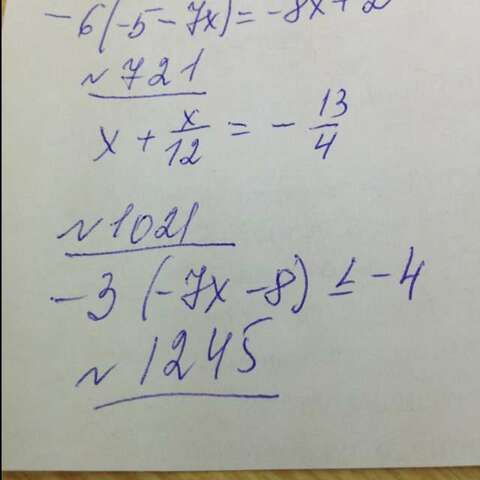 -6(-5-7x)=-8x+2
№721
x + x/12 = - 13/4
№1021
-3 (-7x-8) ≤ -4
№1245